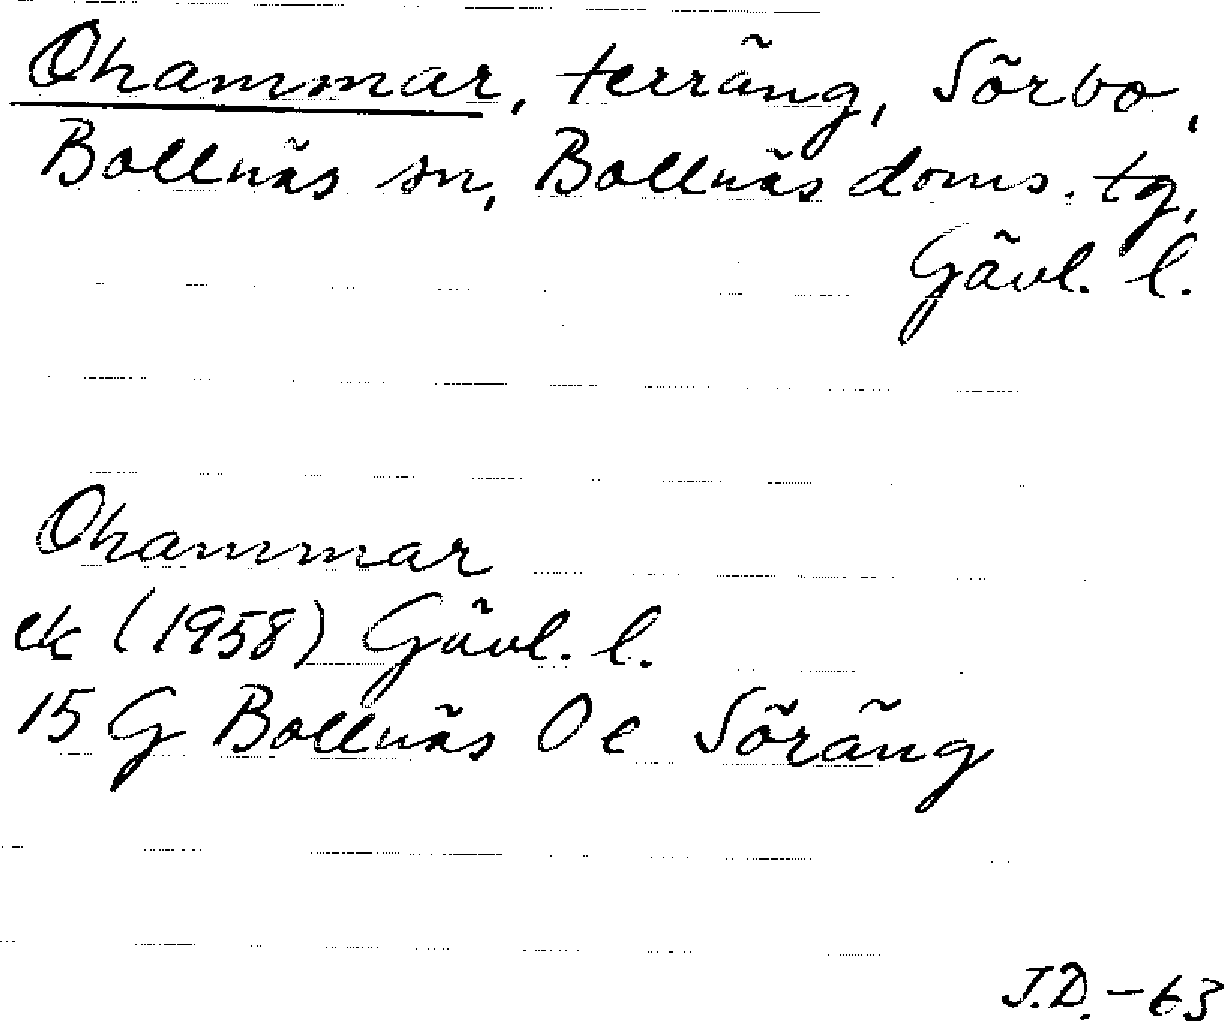 Ohammar, terräng, Sörbo,
Bollnäs sn, Bollnäs doms. tg,
Gävl. l.
Ohammar
ek (1958) Gävl. l.
15 G Bollnäs 0 e Söräng
J.D. - 63